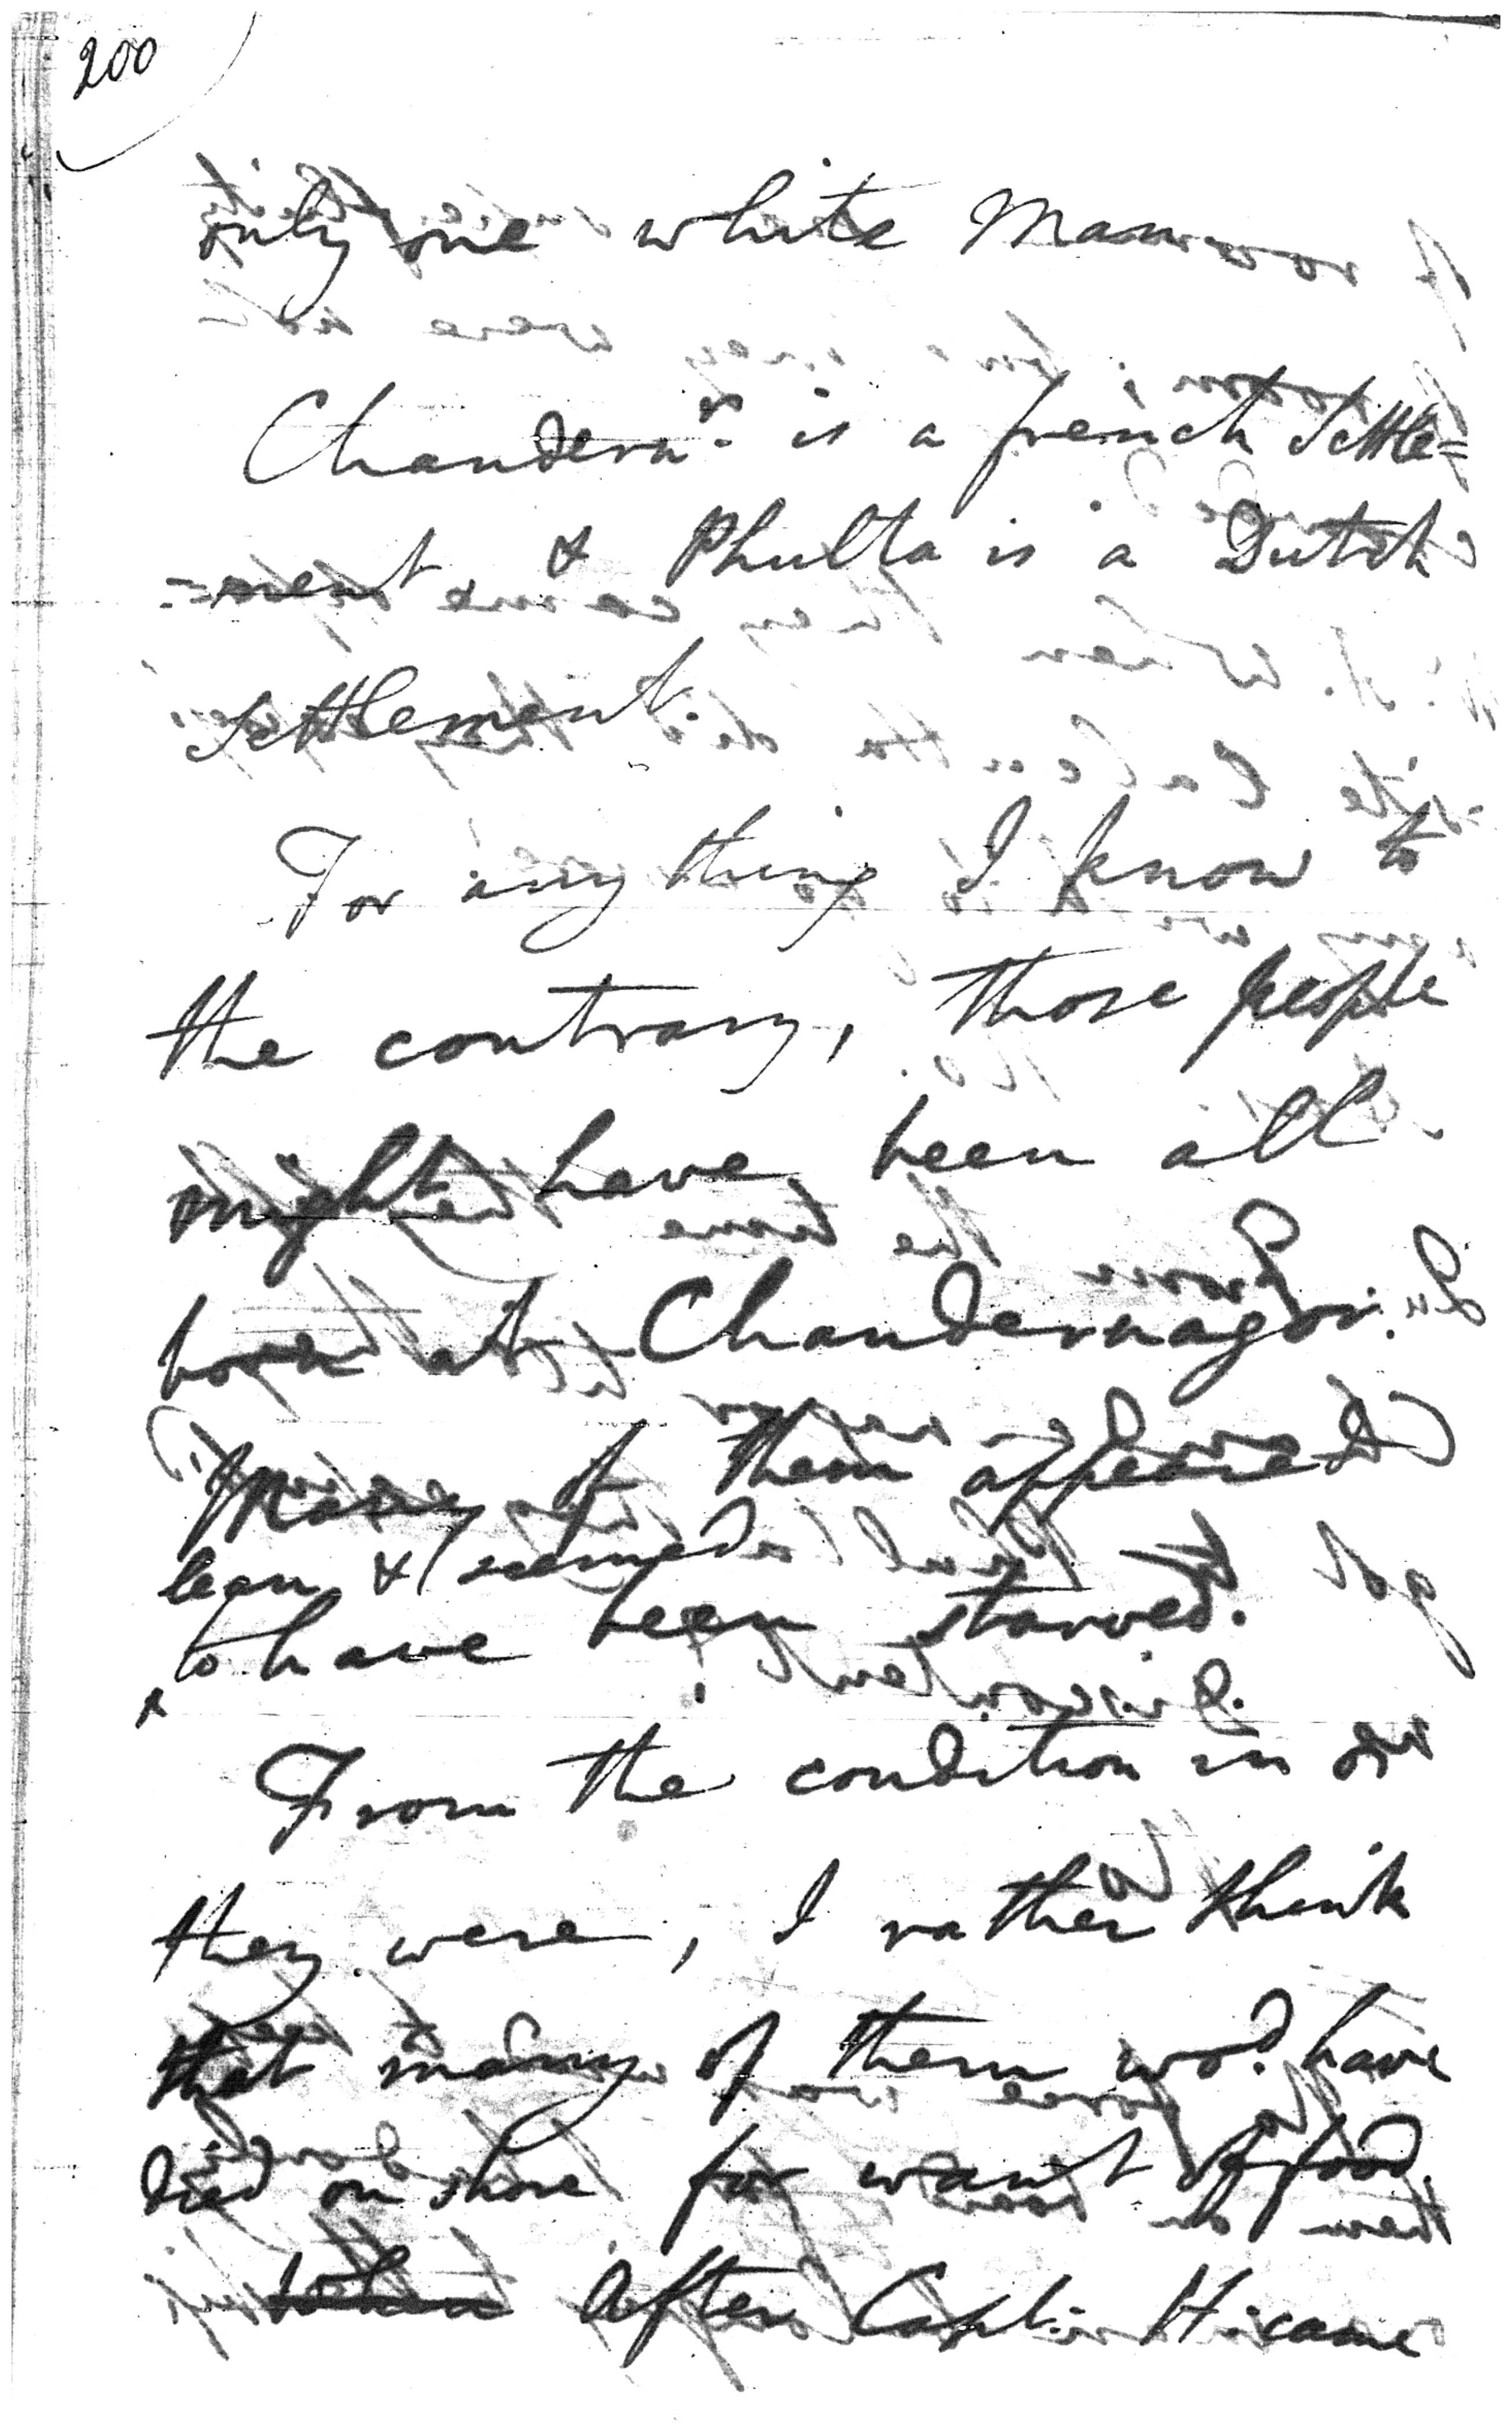 200
only one white Man
Chandern.g. is a french Settle=
=ment & Phulta is a Dutch
Settlement.
For any thing I know to
the contrary, those people
might have been all
born at Chandernagor.
Many of them appeared
lean & seemed
to have been starved.
x
From the condition in
they were, I rather think
that many of them wod. have
died on shore for want of food.
when After Capt. H. came